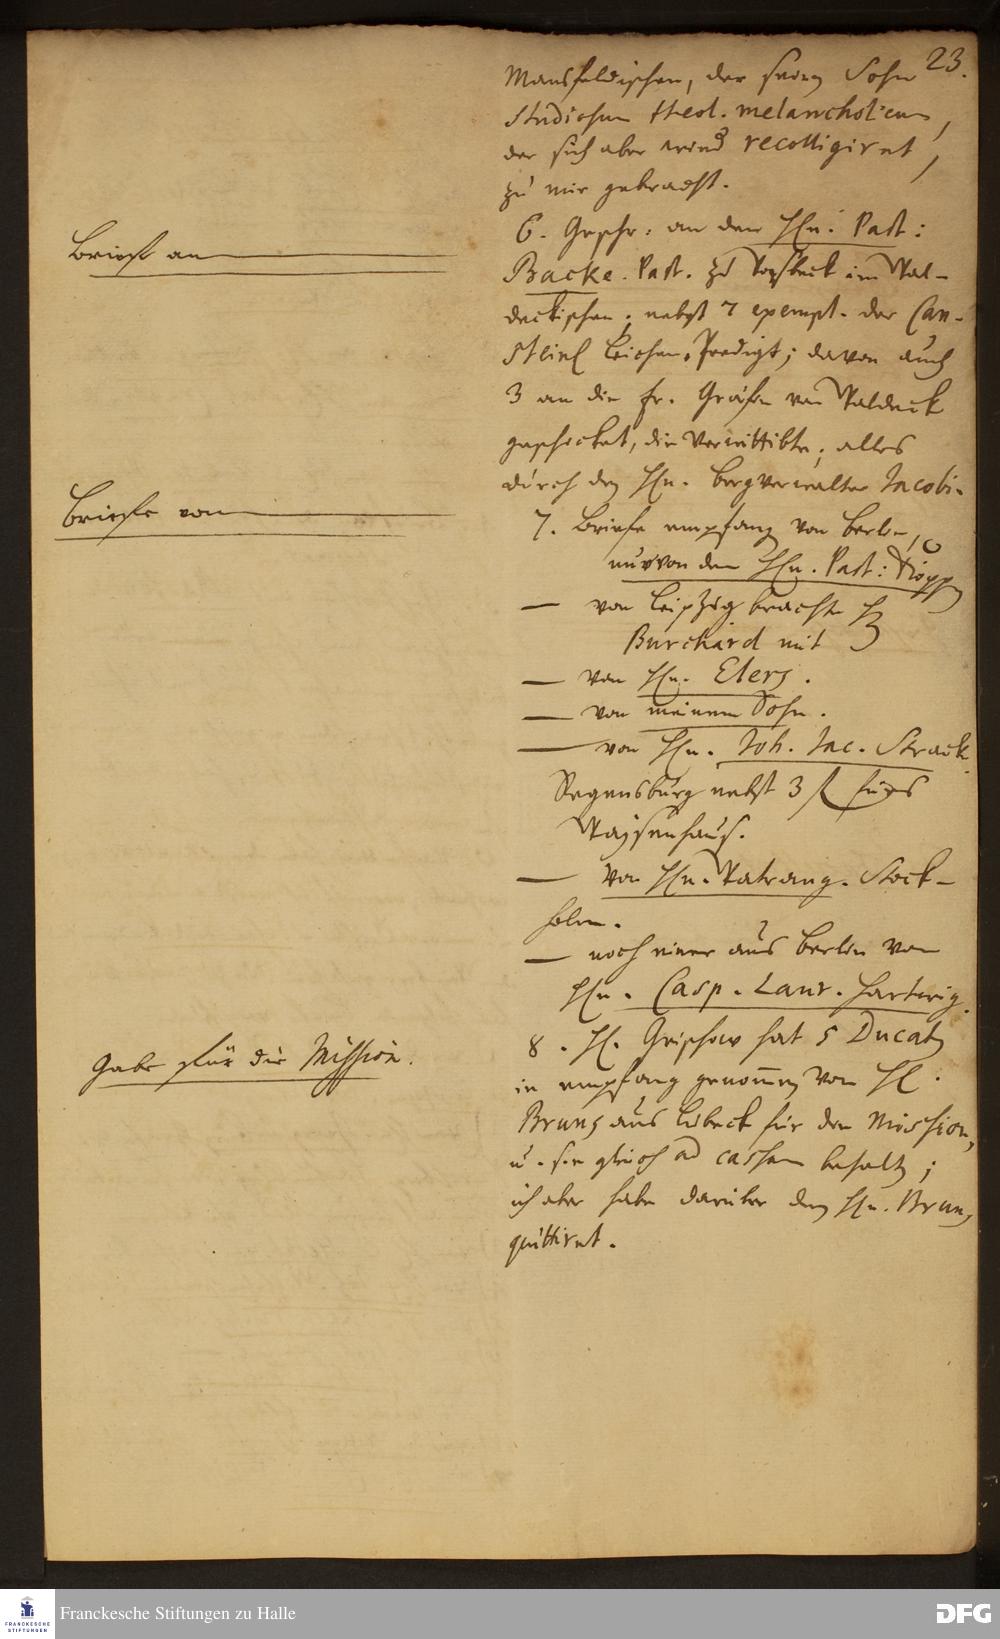 23.
Mansfeldischen, der seinen Sohn
Studiosum theol. melancholicum,
der sich aber wied recolligiret,
zu mir gebracht.
Briefe an
6. Geschr. an den Hn. Past:
Backe. Past. zu im Wal-
deckischen; nebst 7 exempl. der Can-
stein Leichen-Predigt; davon auch
3 an die Fr. Gräfin von Waldeck
geschicket, die Verwittibte; alles
durch den Hn. Bergverwalter Jacobi.
Briefe von
7. Briefe empfang von Berlin,
nur von dem Hn. Past:
— von Leipzig brachte H
Burchard mit
— von Hn. Elers.
— von meinem Sohn.
— von Hn. Joh. Jac. Strack.
Regensburg nebst 3 f fürs
Waysenhaus.
— von Hn. Watrang. Stock-
holm.
— noch einer aus Berlin von
Hn. Casp. Laur. Hartwig.
Gabe für die Mission.
8. H. Grischow hat 5 Ducaten
in empfang genommen von H.
Bruns aus Lübeck für die Mission,
u. sie gleich ad cassam behalten;
ich aber habe darüber dem Hn. Bruns
quittiret.
Franckesche Stiftungen zu Halle
FRANCKESCHE
STIFTUNGEN
DFG